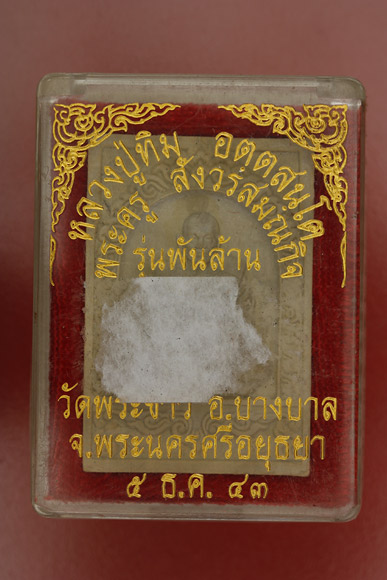 หลวงปู่ทิม อตฺตสนฺโต
พระครู สังวรสมณกิจ
รุ่นพันล้าน
วัดพระขาว อ.บางบาล
จ.พระนครศรีอยุธยา
๕ ธ.ค. ๔๓